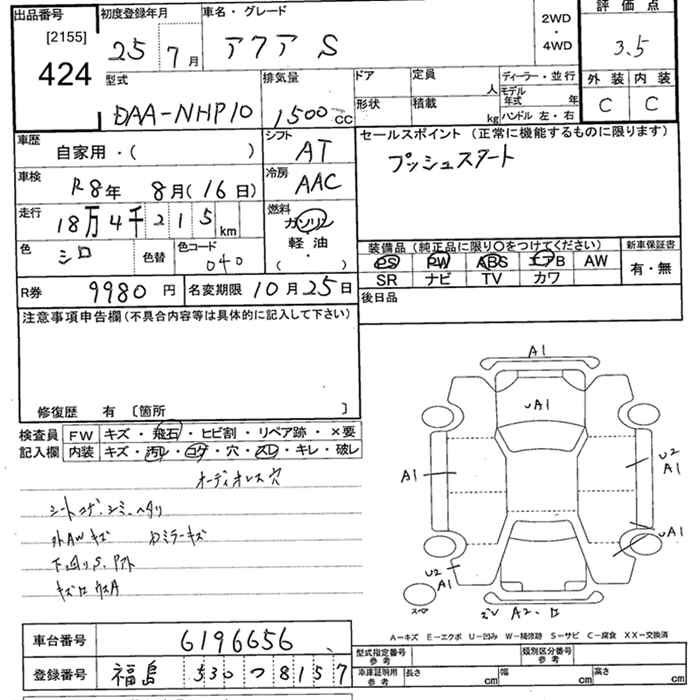 出品番号 初度登録年月 車名・グレード 2WD・4WD 評価点
[2155]
424
25年 7月 アクア S 3.5
型式 排気量 ドア 定員 人 ディーラー・並行 外装 内装
DAA-NHP10 1500cc 形状 積載 kg モデル年式 年 ハンドル 左・右 C C
車歴 自家用・( ) シフト AT セールスポイント (正常に機能するものに限ります)
プッシュスタート
車検 R8年 8月(16日) 冷房 AAC
走行 18万4千215km 燃料 ガソリン 軽油 ・ ( )
色 シロ 色替 色コード 040
装備品 (純正品に限り〇をつけてください) 新車保証書
PS PW ABS エアB AW 有・無
SR ナビ TV カワ
R券 9980円 名変期限 10月25日 後日品
注意事項申告欄 (不具合内容等は具体的に記入して下さい)
修復歴 有 [箇所 ]
検査員記入欄 FW キズ・飛石・ヒビ割・リペア跡・×要
内装 キズ・汚レ・コゲ・穴・スレ・キレ・破レ
オーディオレス穴
シートコゲ.シミ.ヘタリ
外AWキズ Dミラーキズ
下廻りS.
A1
UA1
A1
U2
A1
UA1
U2
A1
A2
A-キズ E-エクボ U-凹み W-補修跡 S-サビ C-腐食 XX-交換済
車台番号 6196656
型式指定番号 参考 類別区分番号 参考
登録番号 福島 530 つ 8157
車庫証明用 参考 長さ cm 幅 cm 高さ cm